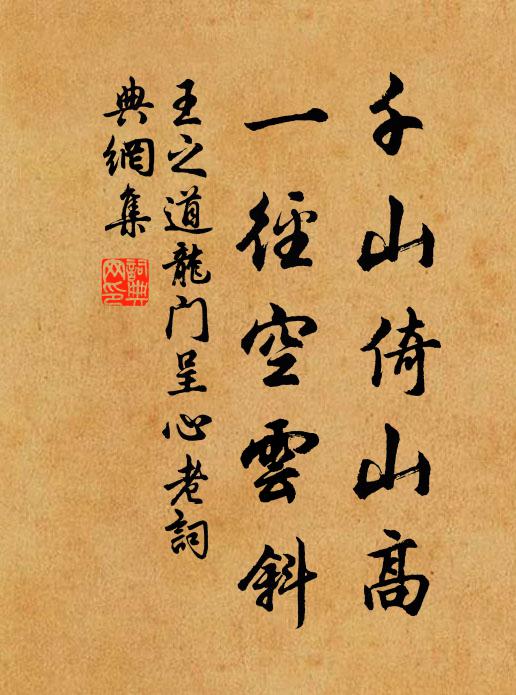 千山倚山高
一徑空雲斜
王之道龍门呈心老詞
典網集
詞典
网印